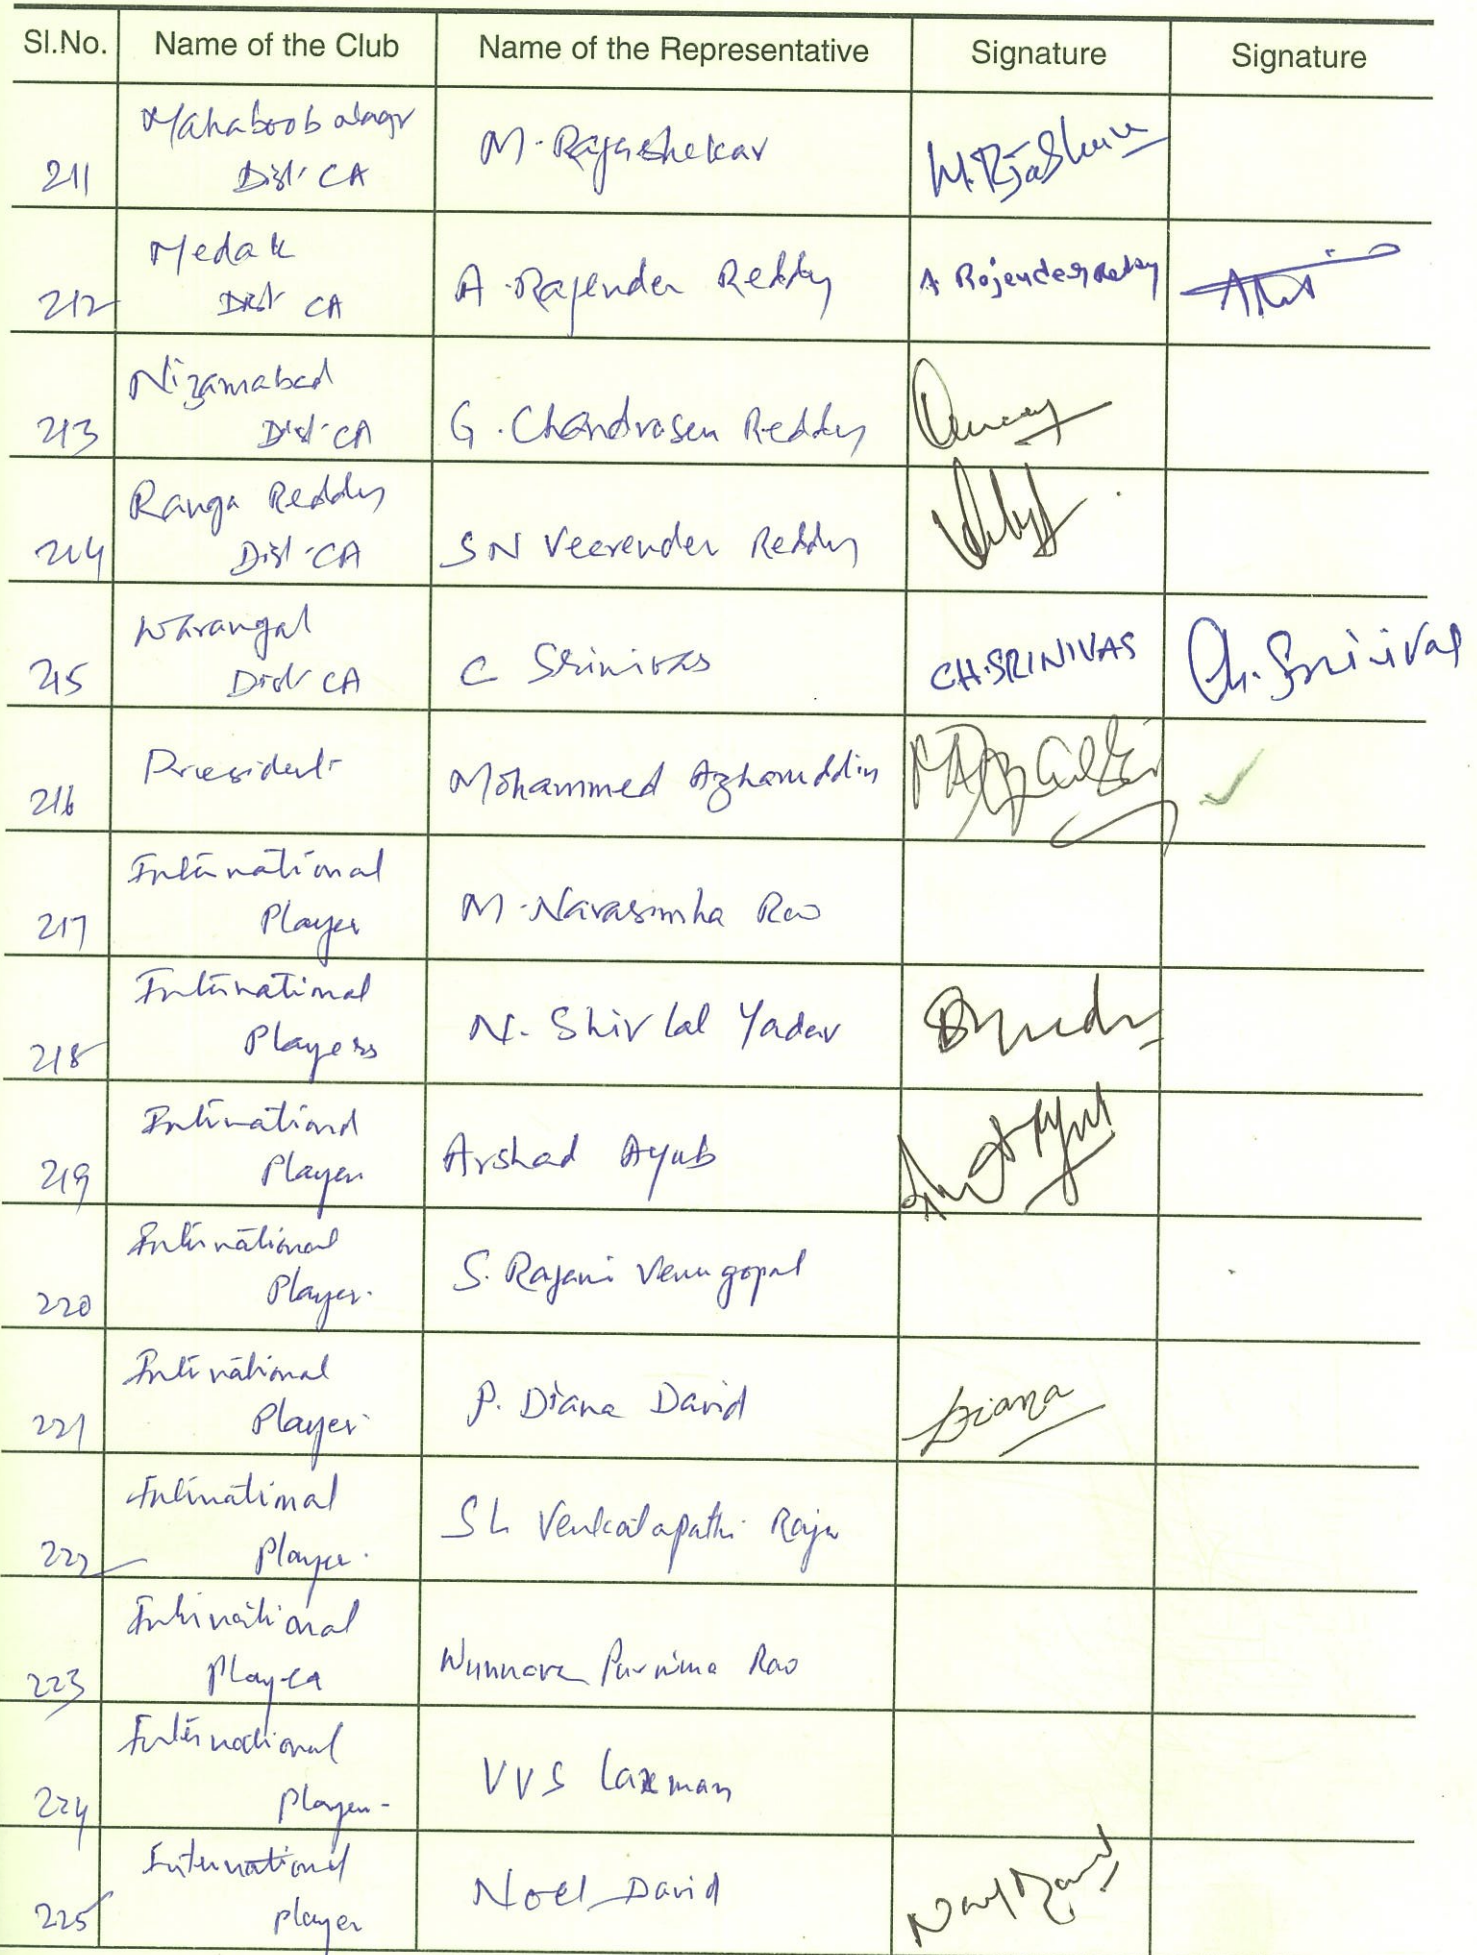 Sl.No. Name of the Club Name of the Representative Signature Signature
Mahaboobnagr
211 Dist. CA M. Rajashekar
Medak
212 Dist CA A. Rajender Reddy A Rajender Reddy
Nizamabad
213 Dist. CA G. Chandrasen Reddy
Ranga Reddy
214 Dist. CA SN Veerender Reddy
Warangal
215 Dist CA C Srinivas CH.SRINIVAS Ch. Srinivas
216 President Mohammed Azharuddin
International
217 Player M. Narasimha Rao
International
218 Players N. Shivlal Yadav
International
219 Player Arshad Ayub
International
220 Player. S. Rajani Venugopal
International
221 Player P. Diana David Diana
International
222 Player. SL Venkatapathi Raju
International
223 Player Purnima Rao
International
224 player- VVS Laxman
International
225 player Noel David Noel David